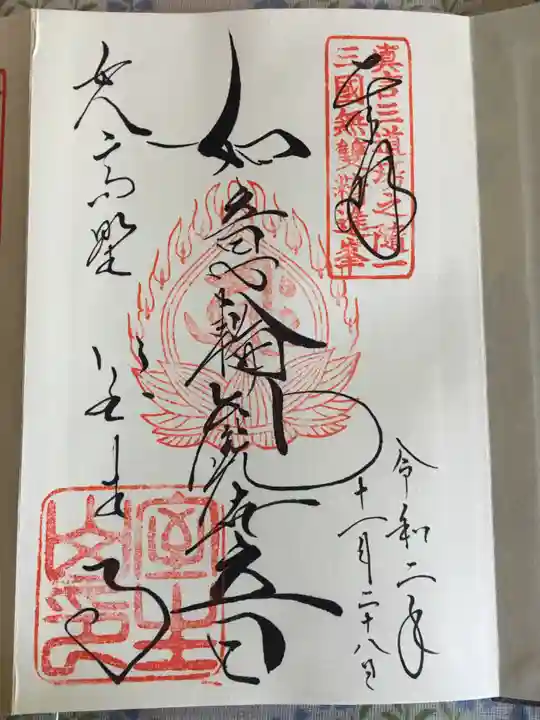 奉拝
真言三道場之随一
三國無雙精進峯
如意輪観世音
女人高野 室生寺
令和二年
十一月二十八日
室生
山印